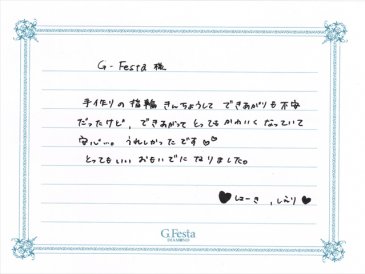 G-Festa 様
手作りの指輪 きんちょうして できあがりも不安
だったけど、できあがって とってもかわいくなっていて
安心…。うれしかったです♡♡
とってもいい おもいでに なりました。
♥ はーき、しえり ♥
G.Festa
DIAMOND